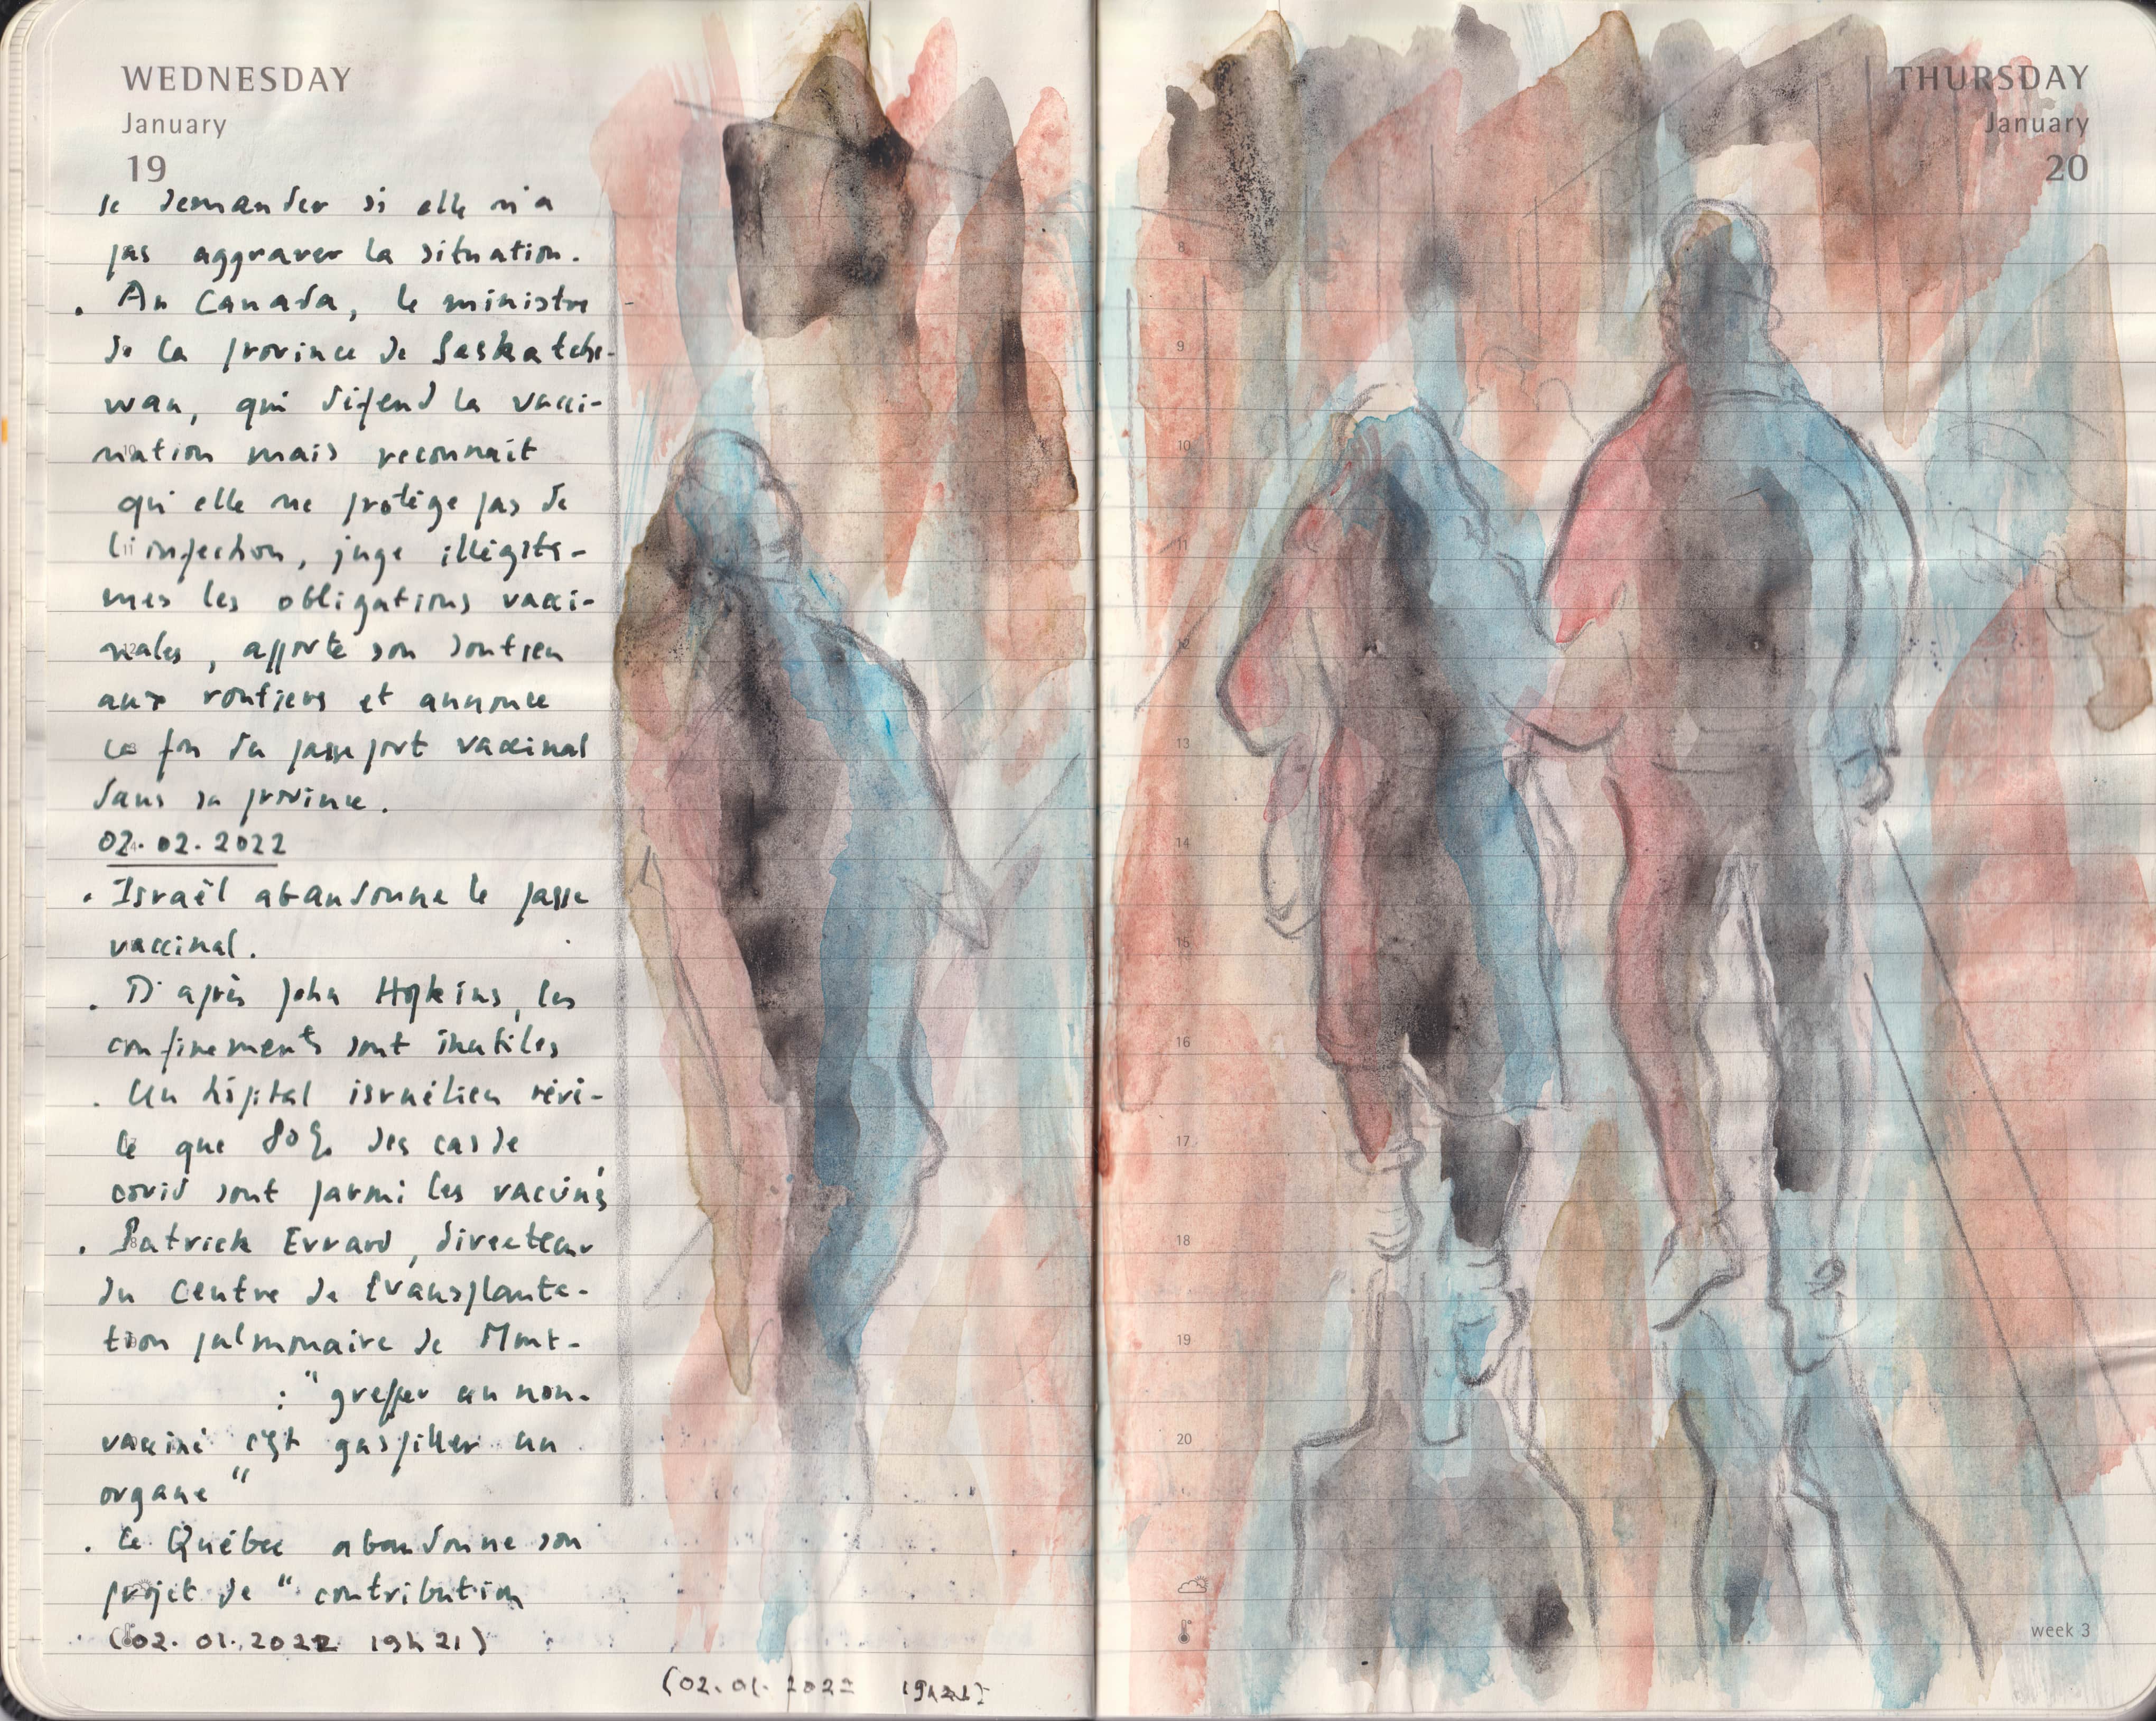 WEDNESDAY
January
19
se demander si elle n'a
pas aggraver la situation.
. Au Canada, le ministre
de la province de Saskatche-
wan, qui défend la vacci-
nation mais reconnait
qu'elle ne protège pas de
l'infection, juge illégiti-
mes les obligations vacci-
nales, apporte son soutien
aux routiers et annonce
la fin du passeport vaccinal
dans sa province.
02.02.2022
. Israël abandonne le passe
vaccinal.
. D'après John Hopkins, les
confinements sont inutiles
. Un hôpital israélien révè-
le que 80% des cas de
covid sont parmi les vaccinés
. Patrick Evrard, directeur
du centre de transplanta-
tion pulmonaire de Mont-
: "greffer un non-
vacciné c'est gaspiller un
organe"
. Le Québec abandonne son
projet de "contribution
(02.01.2022 19h21)
(02.01.2022 19h21)
THURSDAY
January
20
8
9
10
11
12
13
14
15
16
17
18
19
20
week 3